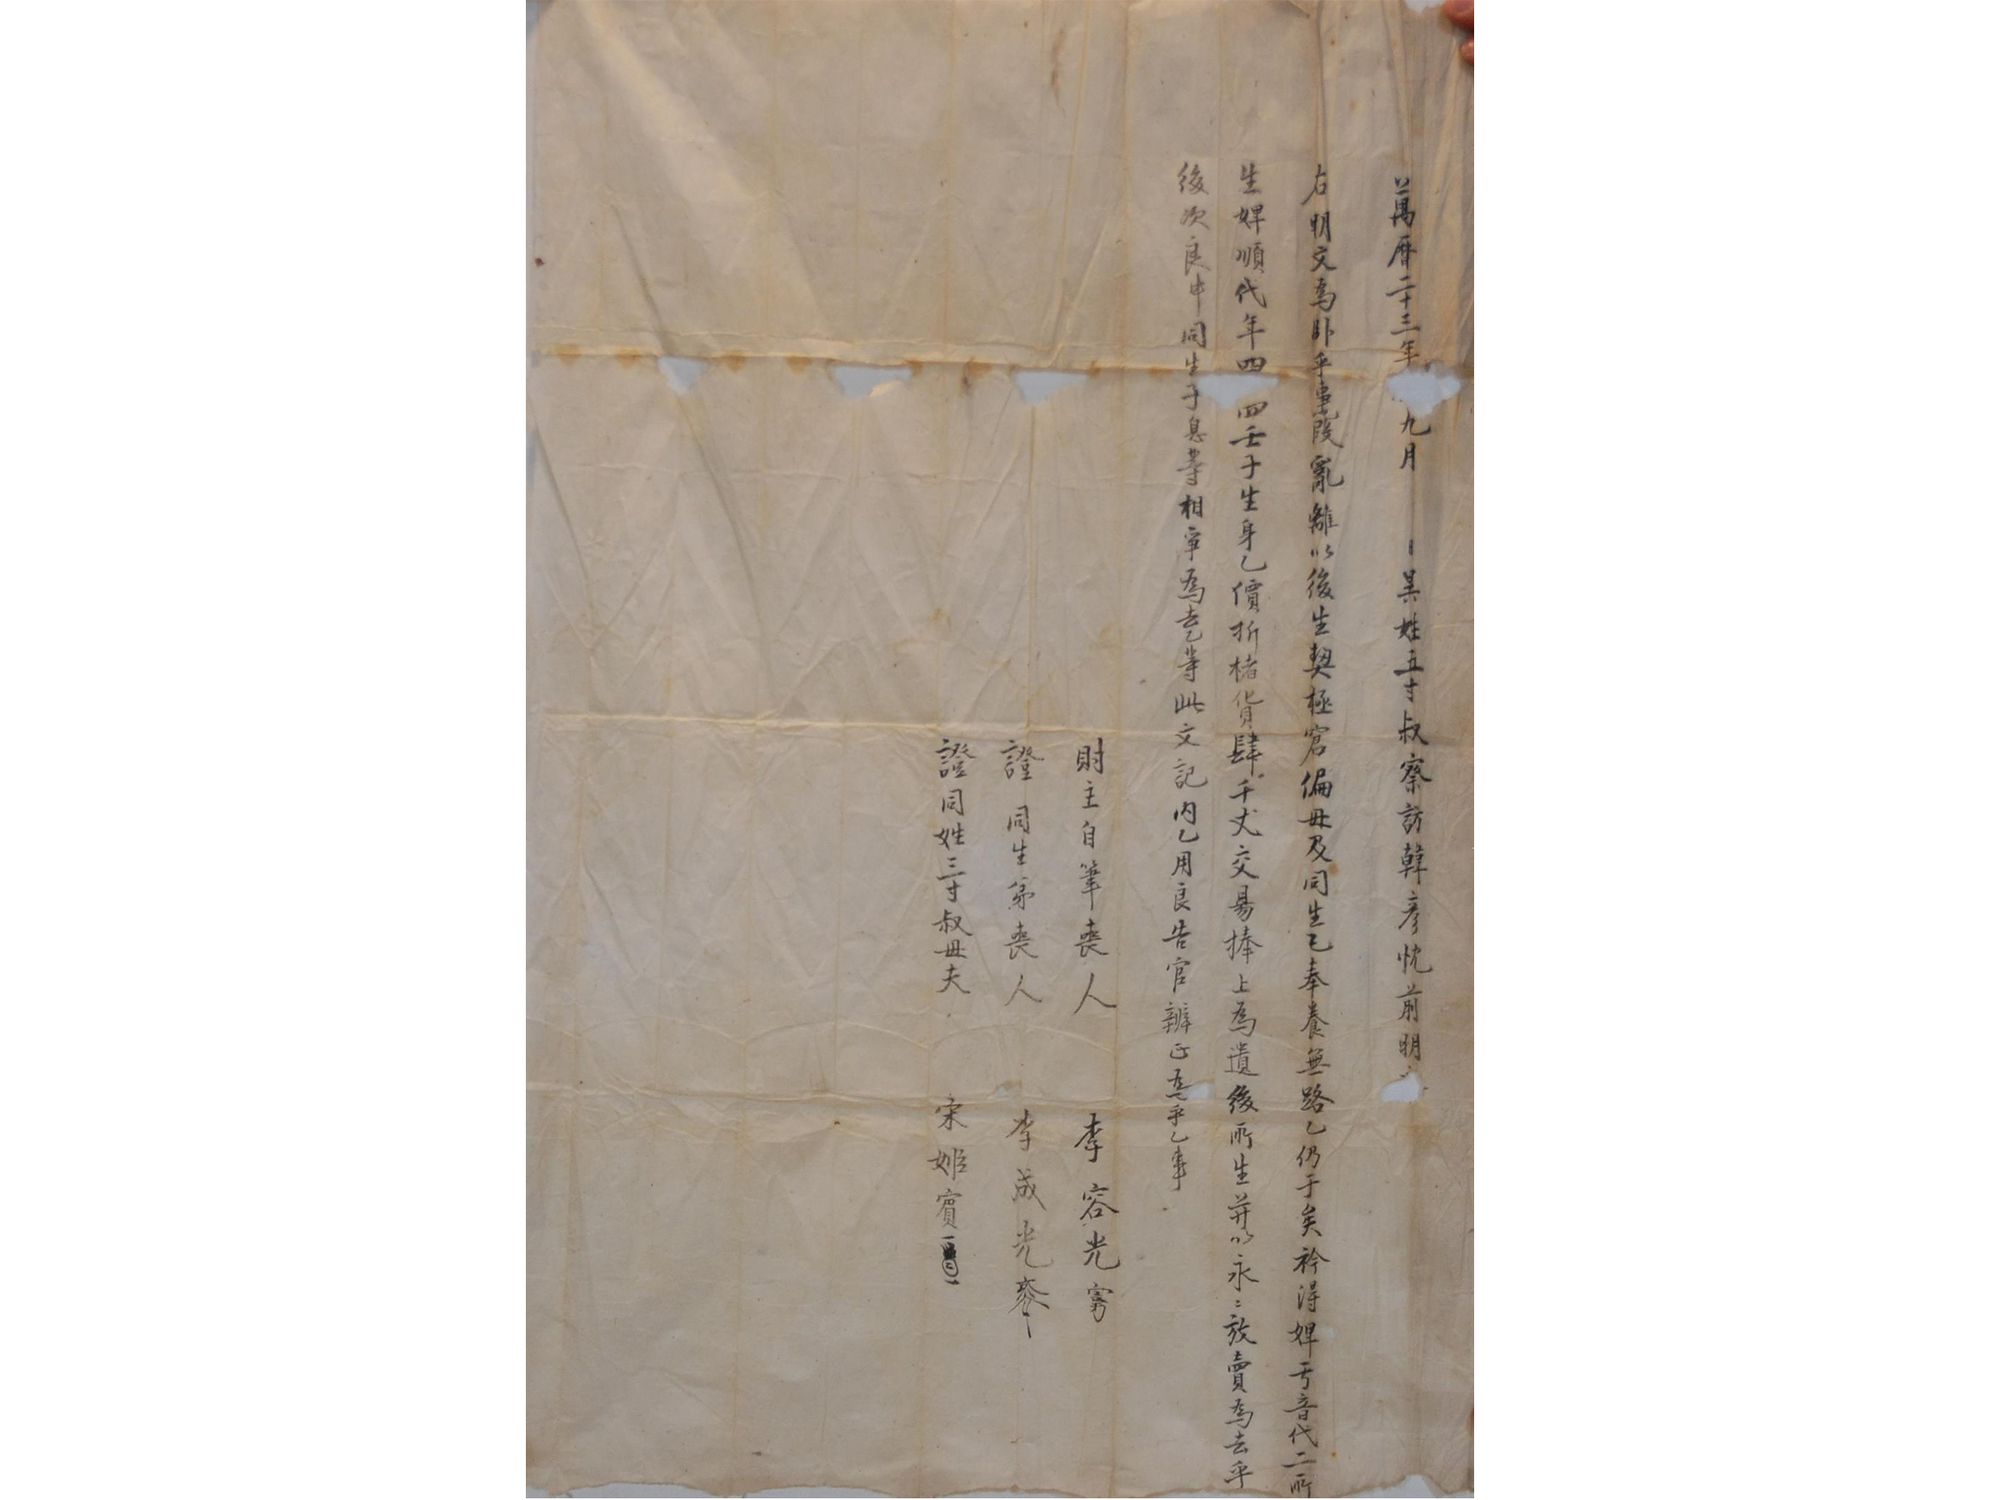 萬曆二十三年 九月 異姓五寸叔察訪韓彦忱前明
右明文爲臥乎事段亂離以後生契極窘偏母及同生乙奉養無路乙仍于矣衿得婢亐音代二所
生婢順代年四 四壬子生身乙價折楮貨肆千丈交易捧上爲遣後所生幷以永〻放賣爲去乎
後次良中同生子息等相爭爲去乙等此文記內乙用良告官辨正爲乎乙事
財主自筆喪人 李容光
證 同生弟喪人 李成光
證同姓三寸叔母夫 宋姬賓